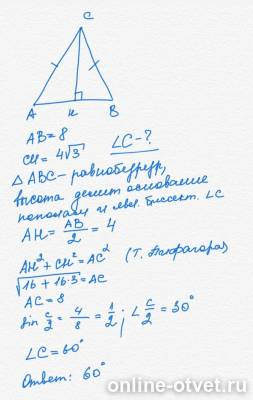 C
A
к
B
AB = 8
CH = 4√3
∠C - ?
△ ABC - равнобедр,
высота делит основание
пополам и явл. биссект. ∠C
AH = AB/2 = 4
AH² + CH² = AC² (Т. Пифагора)
√16 + 16·3 = AC
AC = 8
sin C/2 = 4/8 = 1/2; ∠C/2 = 30°
∠C = 60°
Ответ: 60°
online-otvet.ru